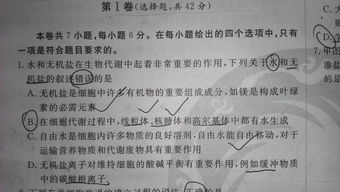 第Ⅰ卷(选择题,共42分)
本卷共7小题,每小题6分。在每小题给出的四个选项中,只有
一项是符合题目要求的。
1.水和无机盐在生物代谢中起着非常重要的作用,下列关于水和无
机盐的叙述错误的是
A.无机盐是细胞中许多有机物的重要组成成分,如镁是构成叶绿
素的必需元素
B.在细胞代谢过程中,线粒体、核糖体和高尔基体中都有水生成
C.自由水是细胞内许多物质的良好溶剂,自由水能自由移动,对于
运输营养物质和代谢废物具有重要作用
D.无机盐离子对维持细胞的酸碱平衡有重要作用,例如缓冲物质
中的碳酸根离子